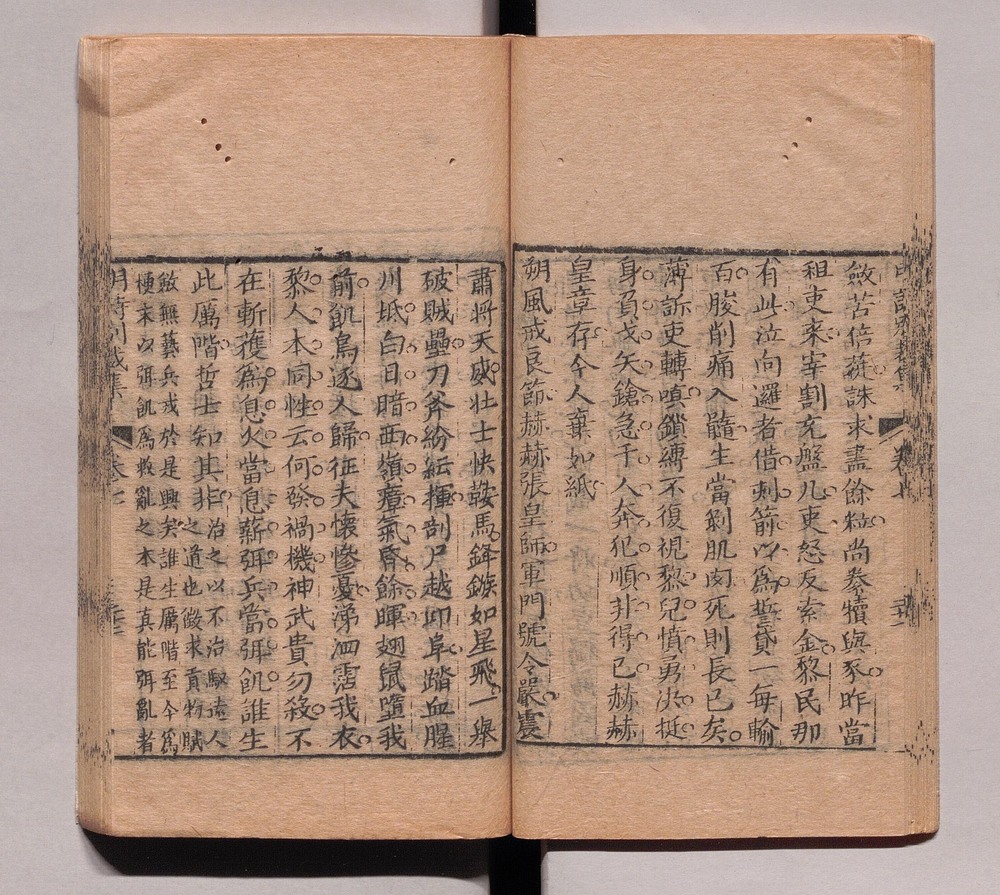 斂苦倍蓰誅求盡餘粒尚豢犢與豕昨當
租吏來宰割充盤几吏怒反索金黎民那
有此泣向邏者借刺箭以爲誓貸一每輸
百朘削痛入髓生當剝肌肉死則長已矣
薄訴吏轉嗔鎖縛不復視黎兒憤勇決挺
身負戈矢鎗急千人奔犯順非得已赫赫
皇章存今人棄如紙
朔風戒良節赫赫張皇師軍門號令嚴震
肅將天威壯士快鞍馬鋒鏃如星飛一舉
破賊壘刀斧紛紜揮剖尸越卬阜踏血腥
川坻白日暗西嶺瘴氣昏餘暉翅鼠墮我
前飢鳥逐人歸征夫懷慘憂涕泗霑我衣
黎人本同性云何發禍機神武貴勿殺不
在斬獲爲息火當息薪弭兵當弭飢誰生
此厲階哲士知其非
治之以不治馭遠人
之道也徵求貢物賦
斂無藝兵戎於是興矣誰生厲階至今爲
梗末以弭飢爲救亂之本是真能弭亂者
明詩別裁集 卷七